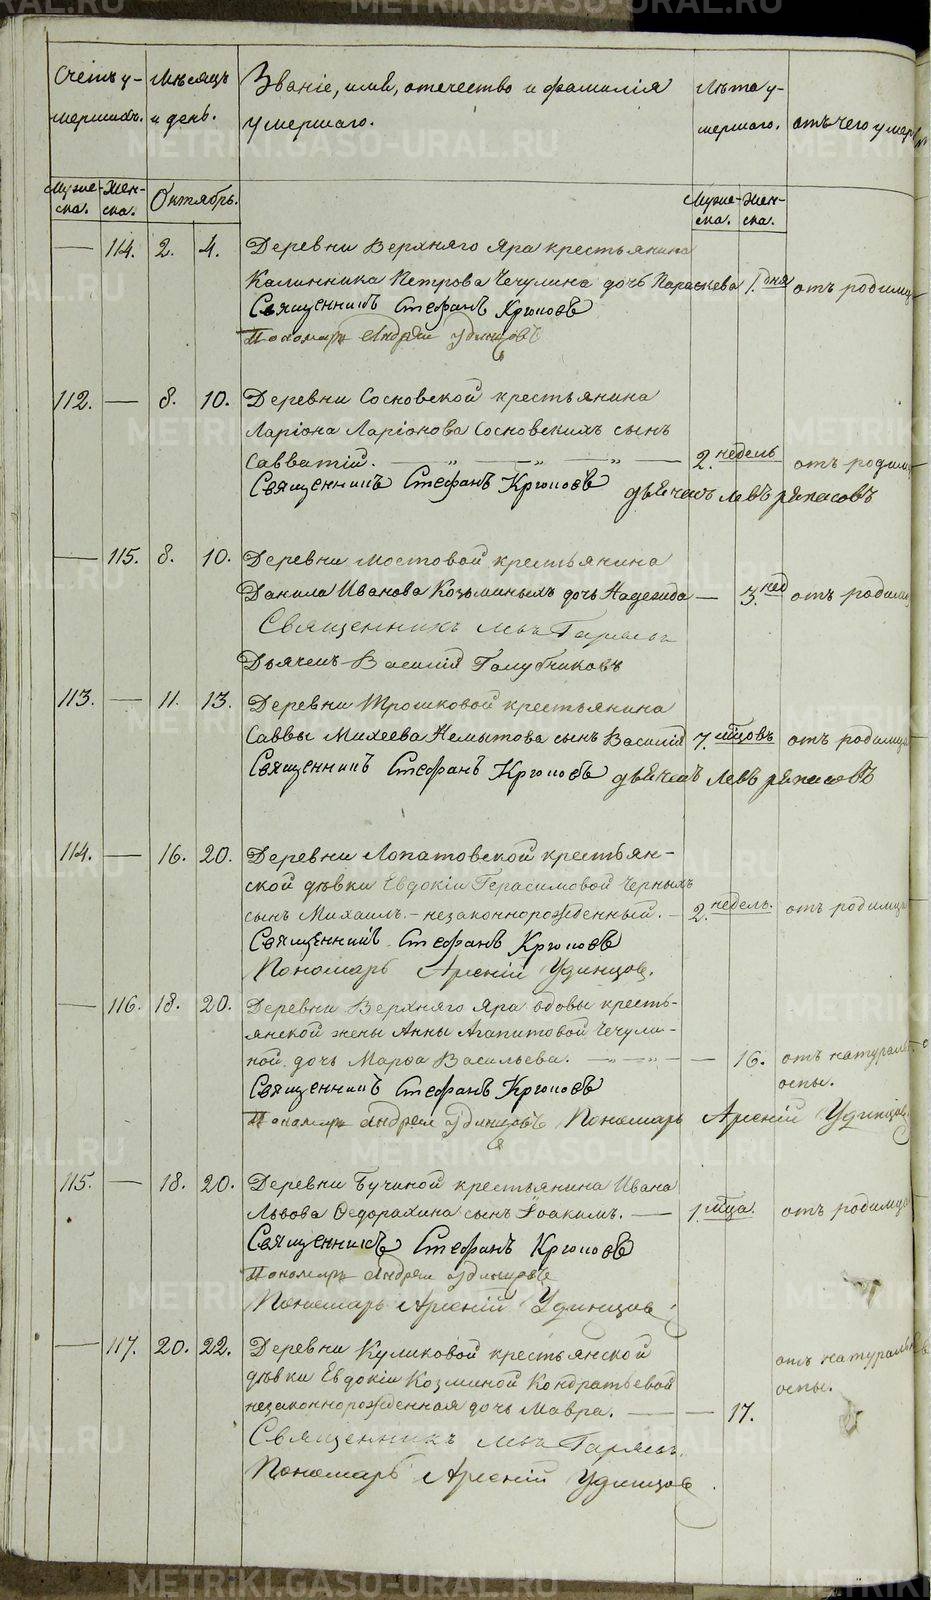 Счетъ у- Мѣсяцъ Званіе, имя, отечество и фамилія Лѣта у-
мершихъ. и день. умершаго. мершаго. отъ чего умер
Муже- Жен- Октябрь. Муже- Жен-
ска. ска. ска. ска.
— 114. 2. 4. Деревни Верхняго Яра крестьянина
Калинника Петрова Чечулина дочь Параскева 1. дня отъ родимца
Священникъ Стефанъ Крюковъ
Пономарь Андрей Удинцовъ
112. — 8. 10. Деревни Сосновской крестьянина
Ларіона Ларіонова Сосновскихъ сынъ
Савватій. — „ — „ — „ — 2. недель отъ родимц
Священникъ Стефанъ Крюковъ дьячокъ Левъ Ряпасовъ
— 115. 8. 10. Деревни Мостовой крестьянина
Данила Иванова Козьминыхъ дочь Надежда — 3. нед отъ родимц
Священникъ Левъ
Дьячекъ Василій Голубчиковъ
113. — 11. 13. Деревни Трошковой крестьянина
Саввы Михеева Немытова сынъ Василій 7. мцовъ отъ родимца
Священникъ Стефанъ Крюковъ дьячекъ Левъ Ряпасовъ
114. — 16. 20. Деревни Лопатовской крестьян-
ской дѣвки Евдокіи Герасимовой Черныхъ
сынъ Михаилъ – незаконнорожденный. – 2. недель. отъ родимца
Священникъ Стефанъ Крюковъ
Пономарь Арсеній Удинцов.
— 116. 18. 20. Деревни Верхняго Яра вдовы кресть-
янской жены Анны Агапитовой Чечули-
ной дочь Марѳа Васильева. — „ — „ — — 16. отъ натураль
оспы.
Священникъ Стефанъ Крюковъ
Пономарь Андрей Удинцовъ Пономарь Арсеній Удинцов.
115. — 18. 20. Деревни Бучиной крестьянина Ивана
Львова Ѳедорахина сынъ Іоакимъ. — 1. мца. отъ родимца
Священникъ Стефанъ Крюковъ
Пономарь Андрей Удинцовъ
Пономарь Арсеній Удинцов.
— 117. 20. 22. Деревни Куликовой крестьянской отъ натураль
дѣвки Евдокіи Козминой Кондратьевой оспы.
незаконнорожденная дочь Мавра. — — 17.
Священникъ Левъ
Пономарь Арсеній Удинцов.
METRIKI.GASO-URAL.RU